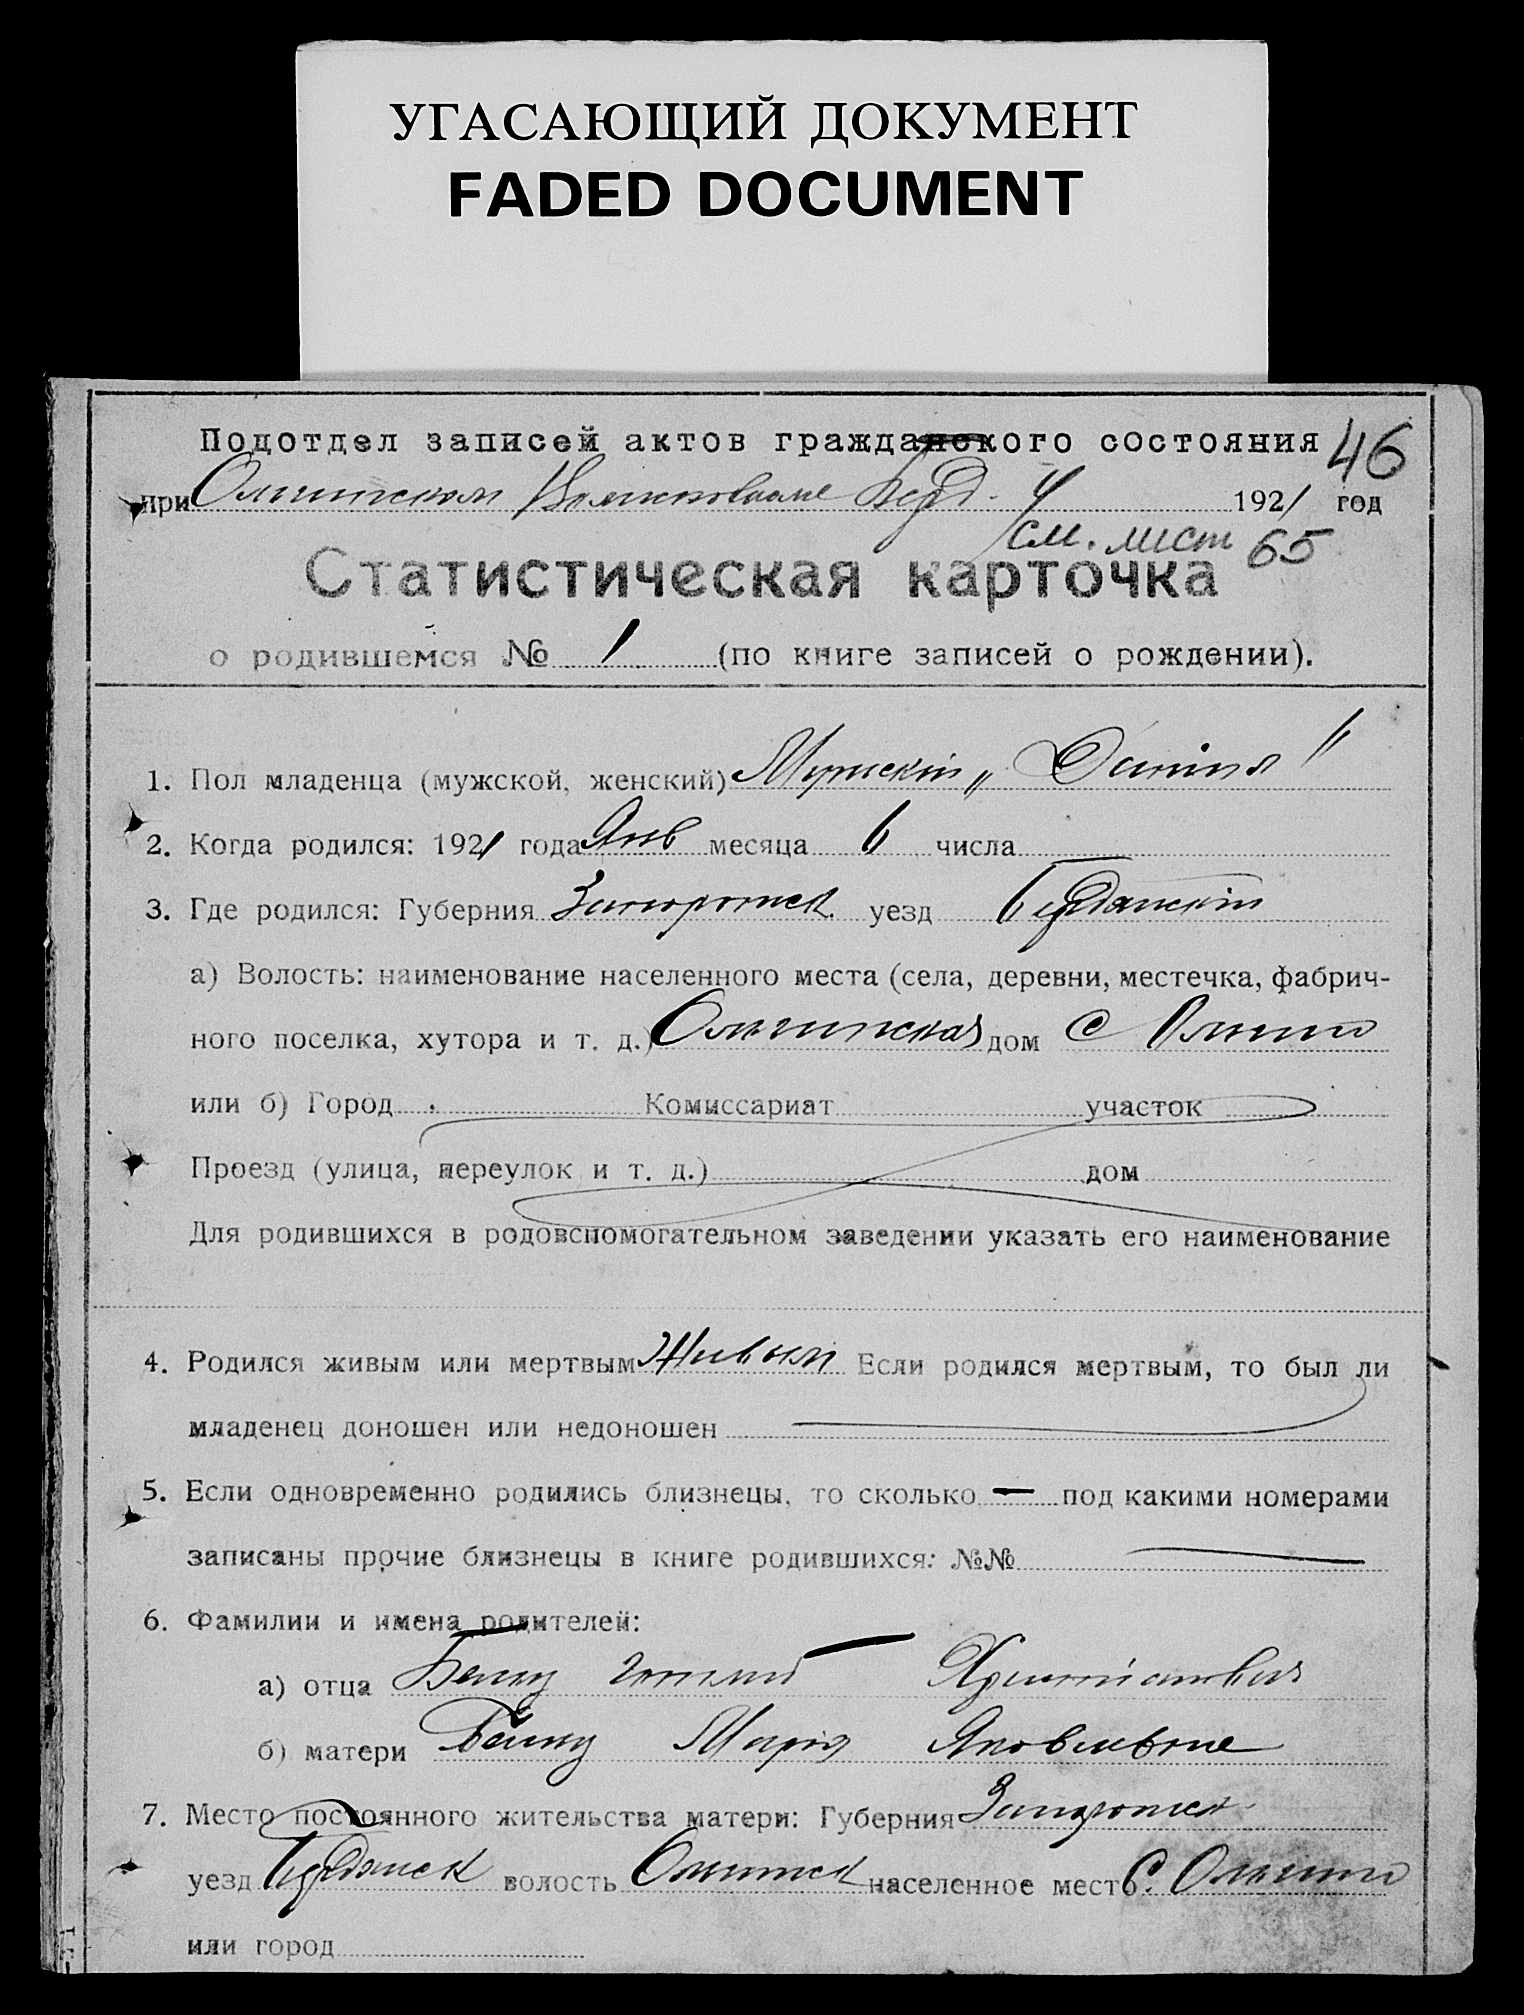 УГАСАЮЩИЙ ДОКУМЕНТ
FADED DOCUMENT
Подотдел записей актов гражданского состояния 46
при Ольгинском Берд. У 1921 год
см. лист 65
Статистическая карточка
о родившемся № 1 (по книге записей о рождении).
1. Пол младенца (мужской, женский) Мужскiй
2. Когда родился: 1921 года Янв месяца 6 числа
3. Где родился: Губерния Запорожск. уезд Бердянскiй
а) Волость: наименование населенного места (села, деревни, местечка, фабрич-
ного поселка, хутора и т. д.) Ольгинская дом С Ольгино
или б) Город Комиссариат участок
Проезд (улица, переулок и т. д.) дом
Для родившихся в родовспомогательном заведении указать его наименование
4. Родился живым или мертвым Живым Если родился мертвым, то был ли
младенец доношен или недоношен
5. Если одновременно родились близнецы, то сколько — под какими номерами
записаны прочие близнецы в книге родившихся: №№ —
6. Фамилии и имена родителей:
а) отца
б) матери Марiя Яковлевне
7. Место постоянного жительства матери: Губерния Запорожск
уезд Бердянск волость Ольгинск населенное место С. Ольгино
или город